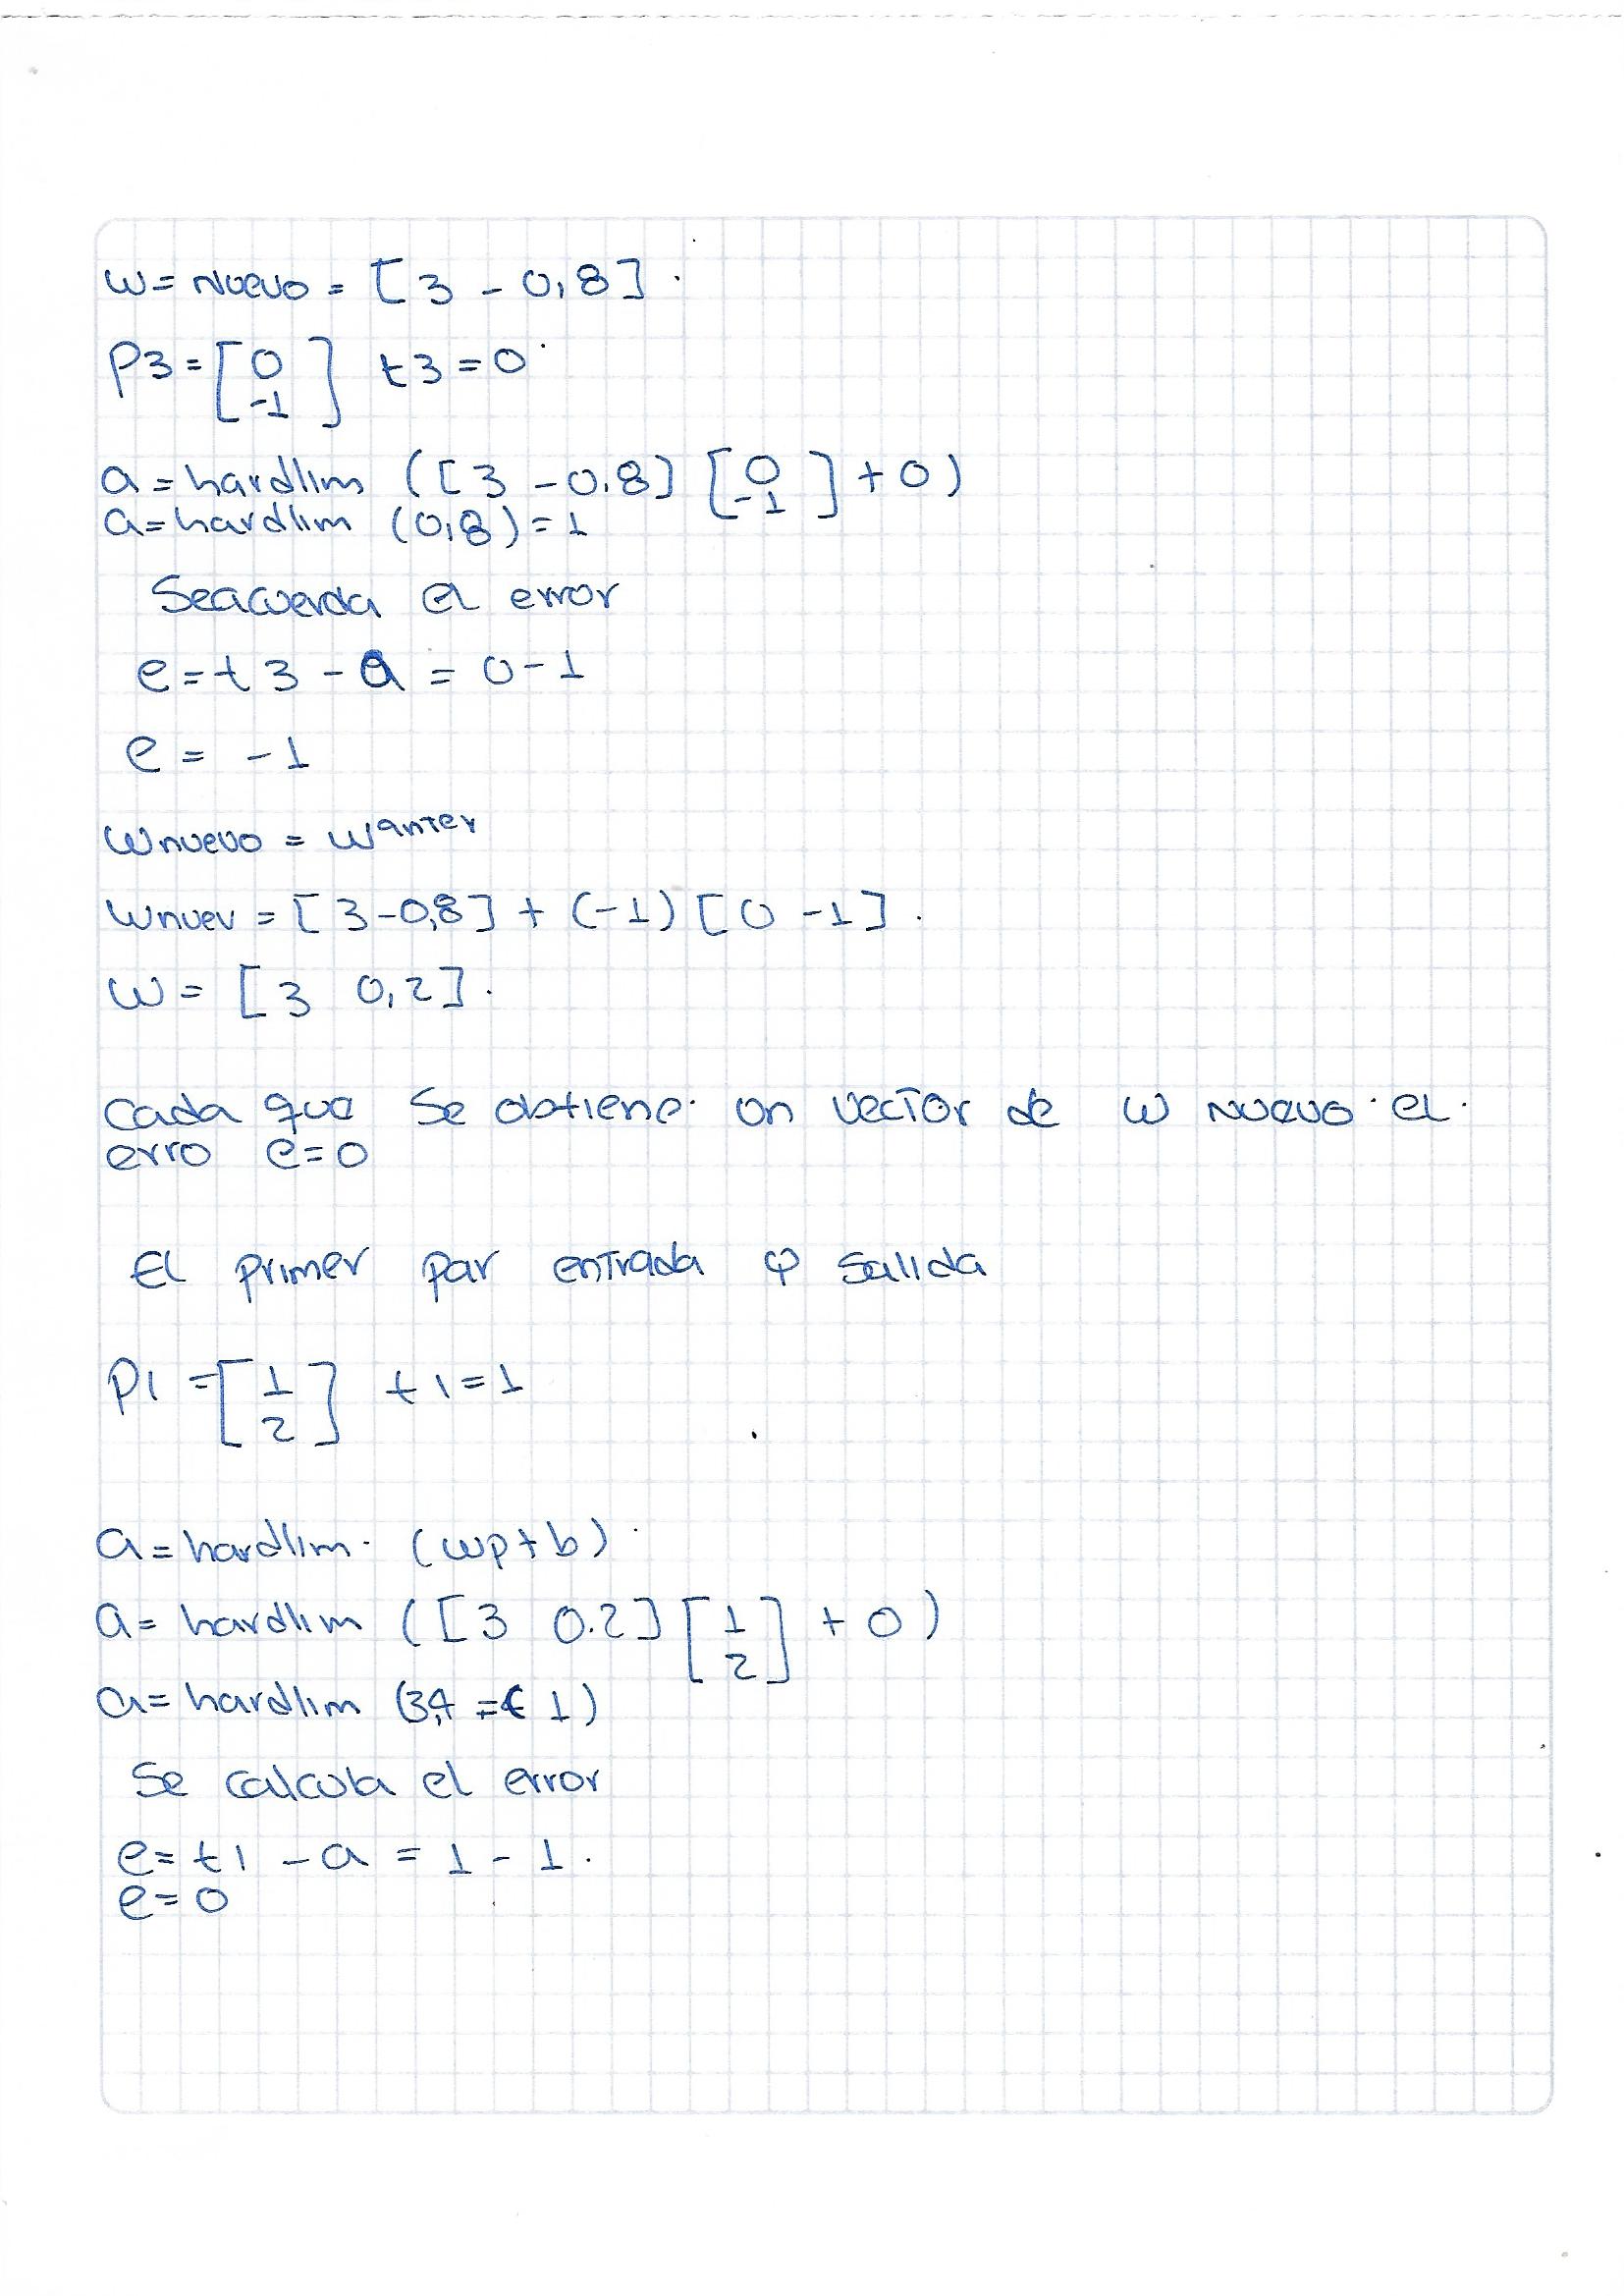 w= nuevo = [3 - 0,8].
P3 = [0 -1] t3 = 0
a = hardlim ([3 -0.8] [0 -1] + 0)
a = hardlim (0,8) = 1
Seacuerda el error
e = t3 - a = 0 - 1
e = -1
wnuevo = w anter
wnuev = [3 -0,8] + (-1) [0 -1].
w = [3 0,2].
Cada que se obtiene un vector de w nuevo el.
erro e=0
El primer par entrada y salida
P1 = [1 2] t1 = 1
a = hardlim. (wp+b)
a = hardlim ([3 0.2] [1 2] + 0)
a = hardlim (3,4 = 1)
Se calcula el error
e = t1 - a = 1 - 1.
e = 0